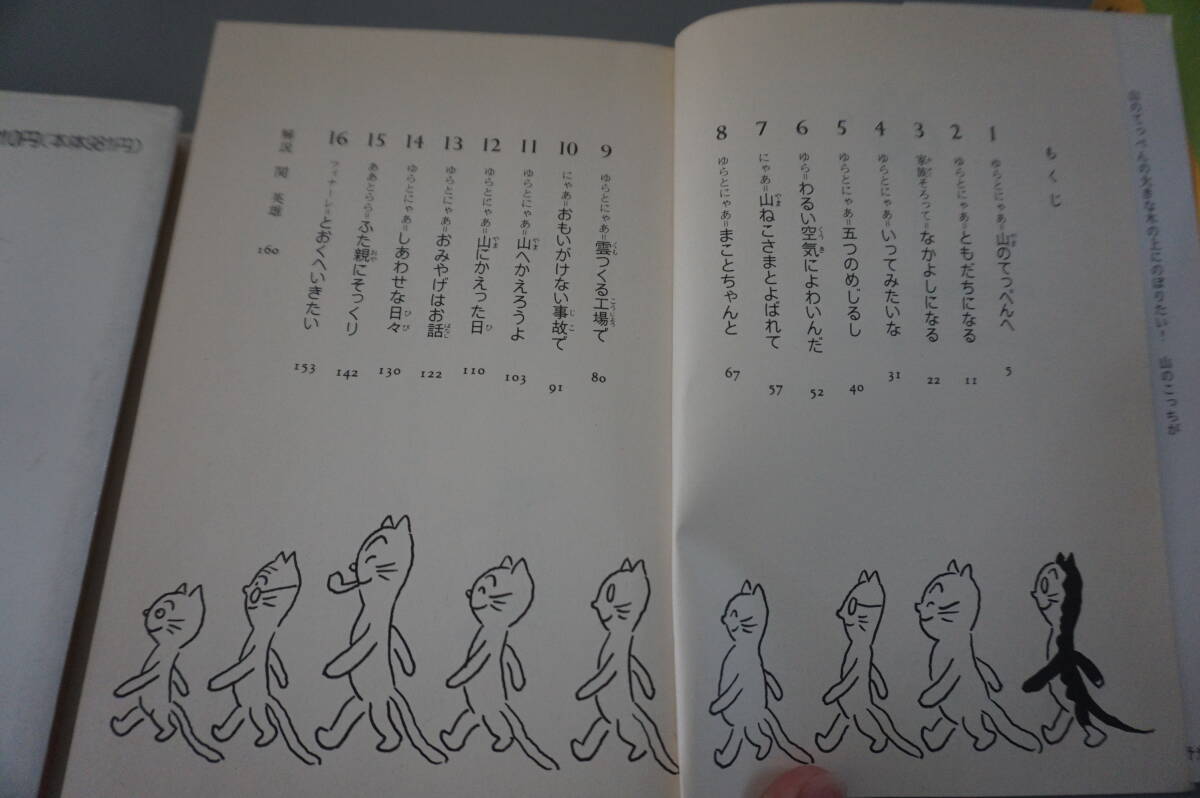 山のてっぺんの大きな木の上にのぼりたい! 山のこっちが
もくじ
1 ゆらとにゃあ=山のてっぺんへ 5
2 ゆらとにゃあ=ともだちになる 11
3 家族そろって=なかよしになる 22
4 ゆらとにゃあ=いってみたいな 31
5 ゆらとにゃあ=五つのめじるし 40
6 ゆら=わるい空気によわいんだ 52
7 にゃあ=山ねこさまとよばれて 57
8 ゆらとにゃあ=まことちゃんと 67
9 ゆらとにゃあ=雲つくる工場で 80
10 にゃあ=おもいがけない事故で 91
11 ゆらとにゃあ=山へかえろうよ 103
12 ゆらとにゃあ=山にかえった日 110
13 ゆらとにゃあ=おみやげはお話 122
14 ゆらとにゃあ=しあわせな日々 130
15 ああとらら=ふた親にそっくり 142
16 フィナーレ=とおくへいきたい 153
解説 関 英雄 160
円(本体981円)